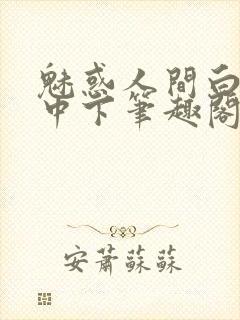 魅惑人間白
中下筆趣閣
安蕭蘇蘇